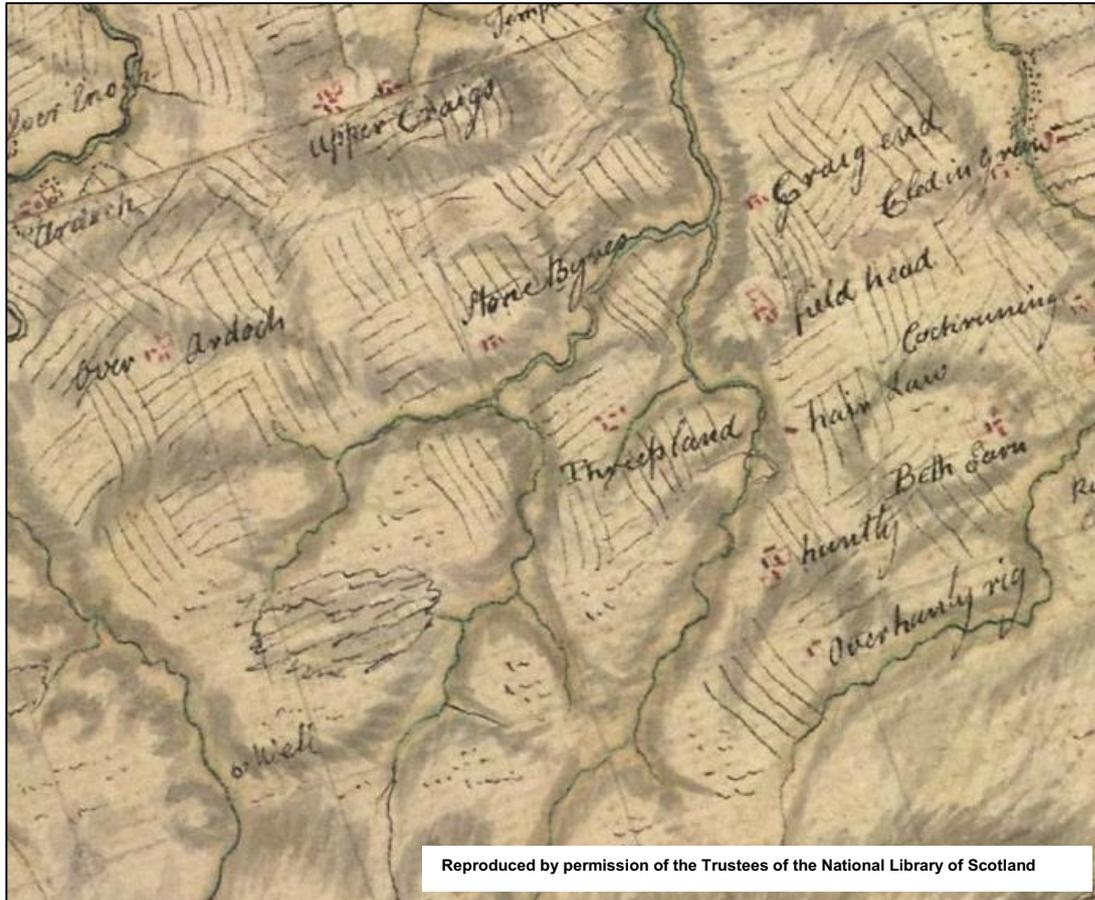 Temp
Upper Craigs
Ardoch
Craig end
Stone Byres
field head
Over Ardoch
hair Law
Threepland
Beth Earn
huntly
Overhanly rig
Well
Reproduced by permission of the Trustees of the National Library of Scotland